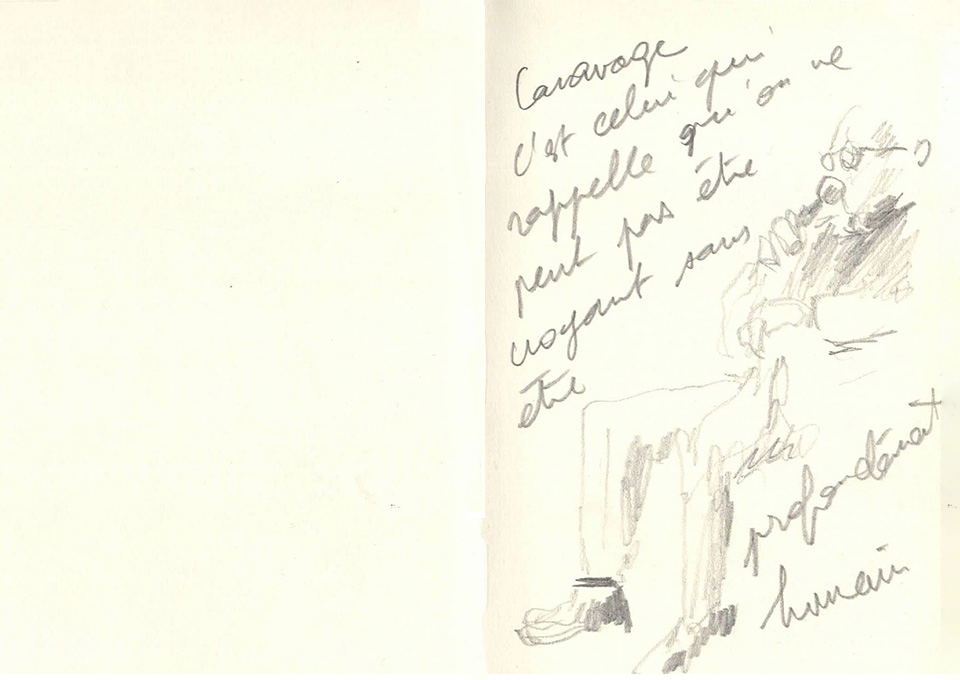 Caravage
c'est celui qui
rappelle qu'on ne
peut pas être
croyant sans
être
profondément
humain